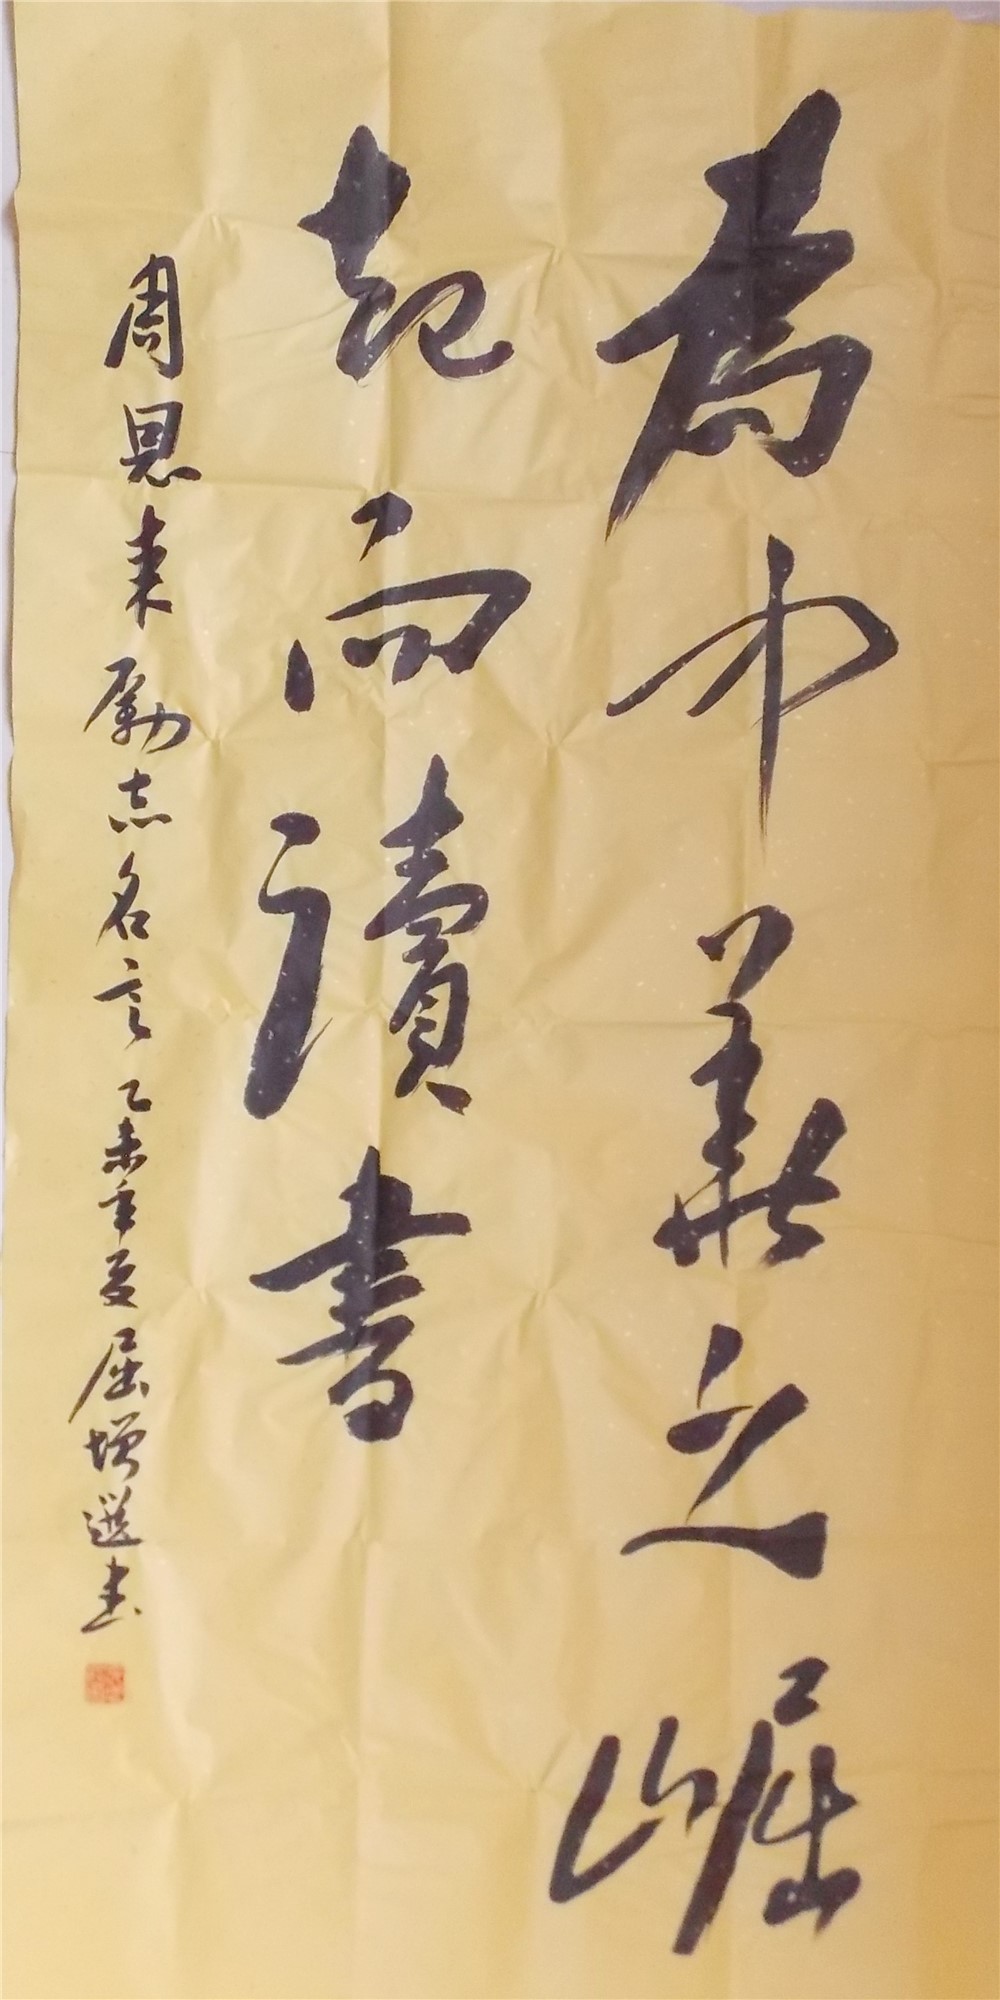 爲中華之崛
起而讀書
周恩来勵志名言乙未年夏屈增選書